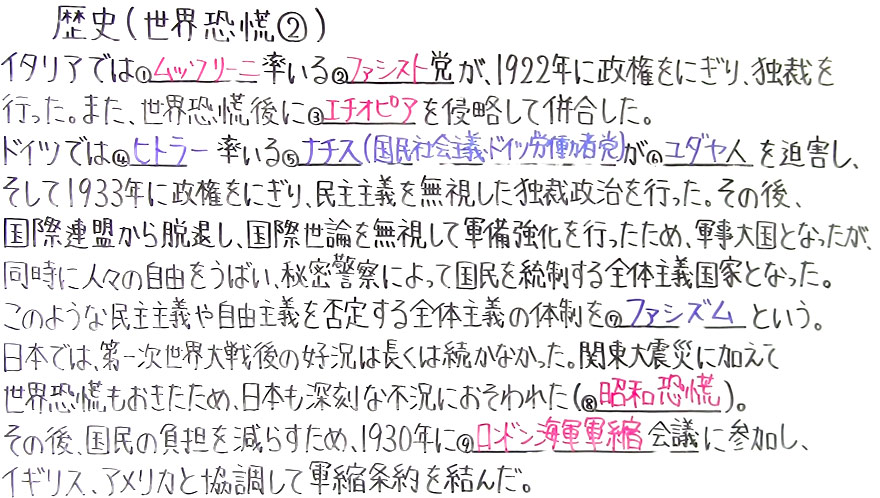 歴史(世界恐慌②)
イタリアでは①ムッソリーニ率いる②ファシスト党が、1922年に政権をにぎり、独裁を
行った。また、世界恐慌後に③エチオピアを侵略して併合した。
ドイツでは④ヒトラー率いる⑤ナチス(国民社会主義ドイツ労働者党)が⑥ユダヤ人を迫害し、
そして1933年に政権をにぎり、民主主義を無視した独裁政治を行った。その後、
国際連盟から脱退し、国際世論を無視して軍備強化を行ったため、軍事大国となったが、
同時に人々の自由をうばい、秘密警察によって国民を統制する全体主義国家となった。
このような民主主義や自由主義を否定する全体主義の体制を⑦ファシズムという。
日本では、第一次世界大戦後の好況は長くは続かなかった。関東大震災に加えて
世界恐慌もおきたため、日本も深刻な不況におそわれた(⑧昭和恐慌)。
その後、国民の負担を減らすため、1930年に⑨ロンドン海軍軍縮会議に参加し、
イギリス、アメリカと協調して軍縮条約を結んだ。